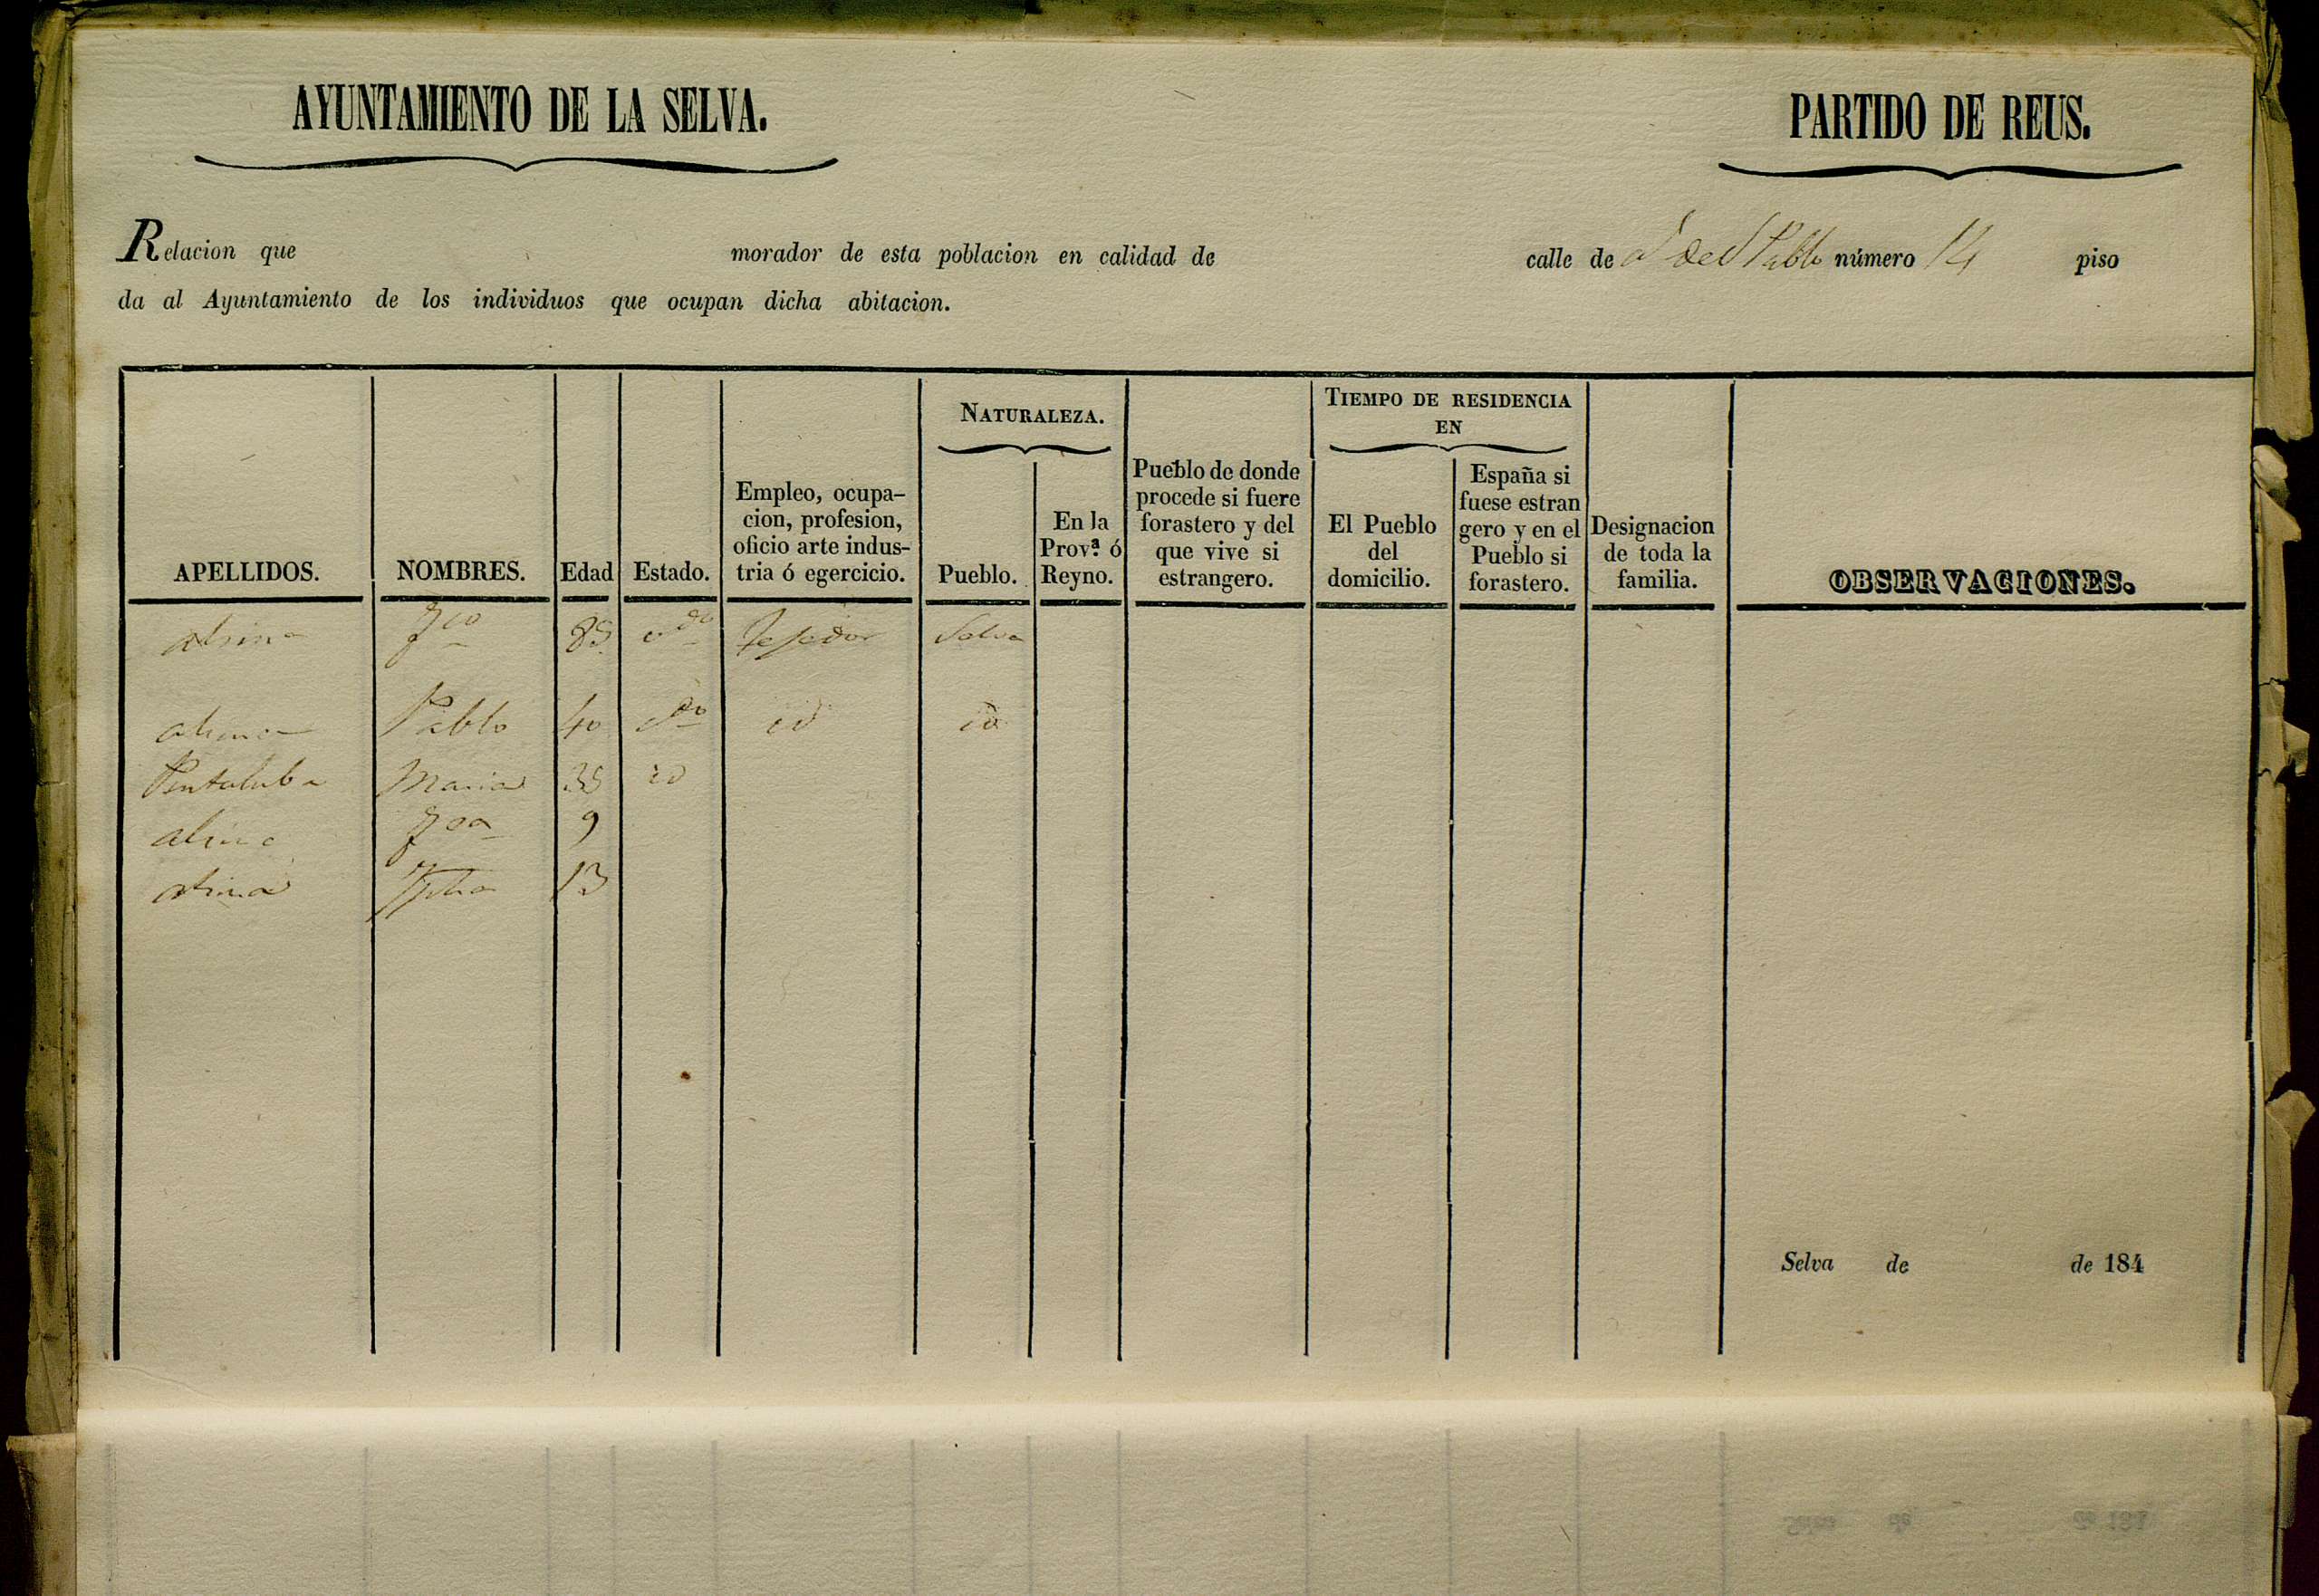 AYUNTAMIENTO DE LA SELVA.
PARTIDO DE REUS.
Relacion que morador de esta poblacion en calidad de calle de Pablo número 14 piso
da al Ayuntamiento de los individuos que ocupan dicha abitacion.
NATURALEZA.
TIEMPO DE RESIDENCIA
EN
APELLIDOS.
NOMBRES.
Edad
Estado.
Empleo, ocupa-
cion, profesion,
oficio arte indus-
tria ó egercicio.
Pueblo.
En la
Provª ó
Reyno.
Pueblo de donde
procede si fuere
forastero y del
que vive si
estrangero.
El Pueblo
del
domicilio.
España si
fuese estran
gero y en el
Pueblo si
forastero.
Designacion
de toda la
familia.
OBSERVACIONES.
alsina fco 85 Tejedor Selva
alsina Pablo 40 id id
Maria 35 id
alsina fca 9
alsina 13
Selva de de 184